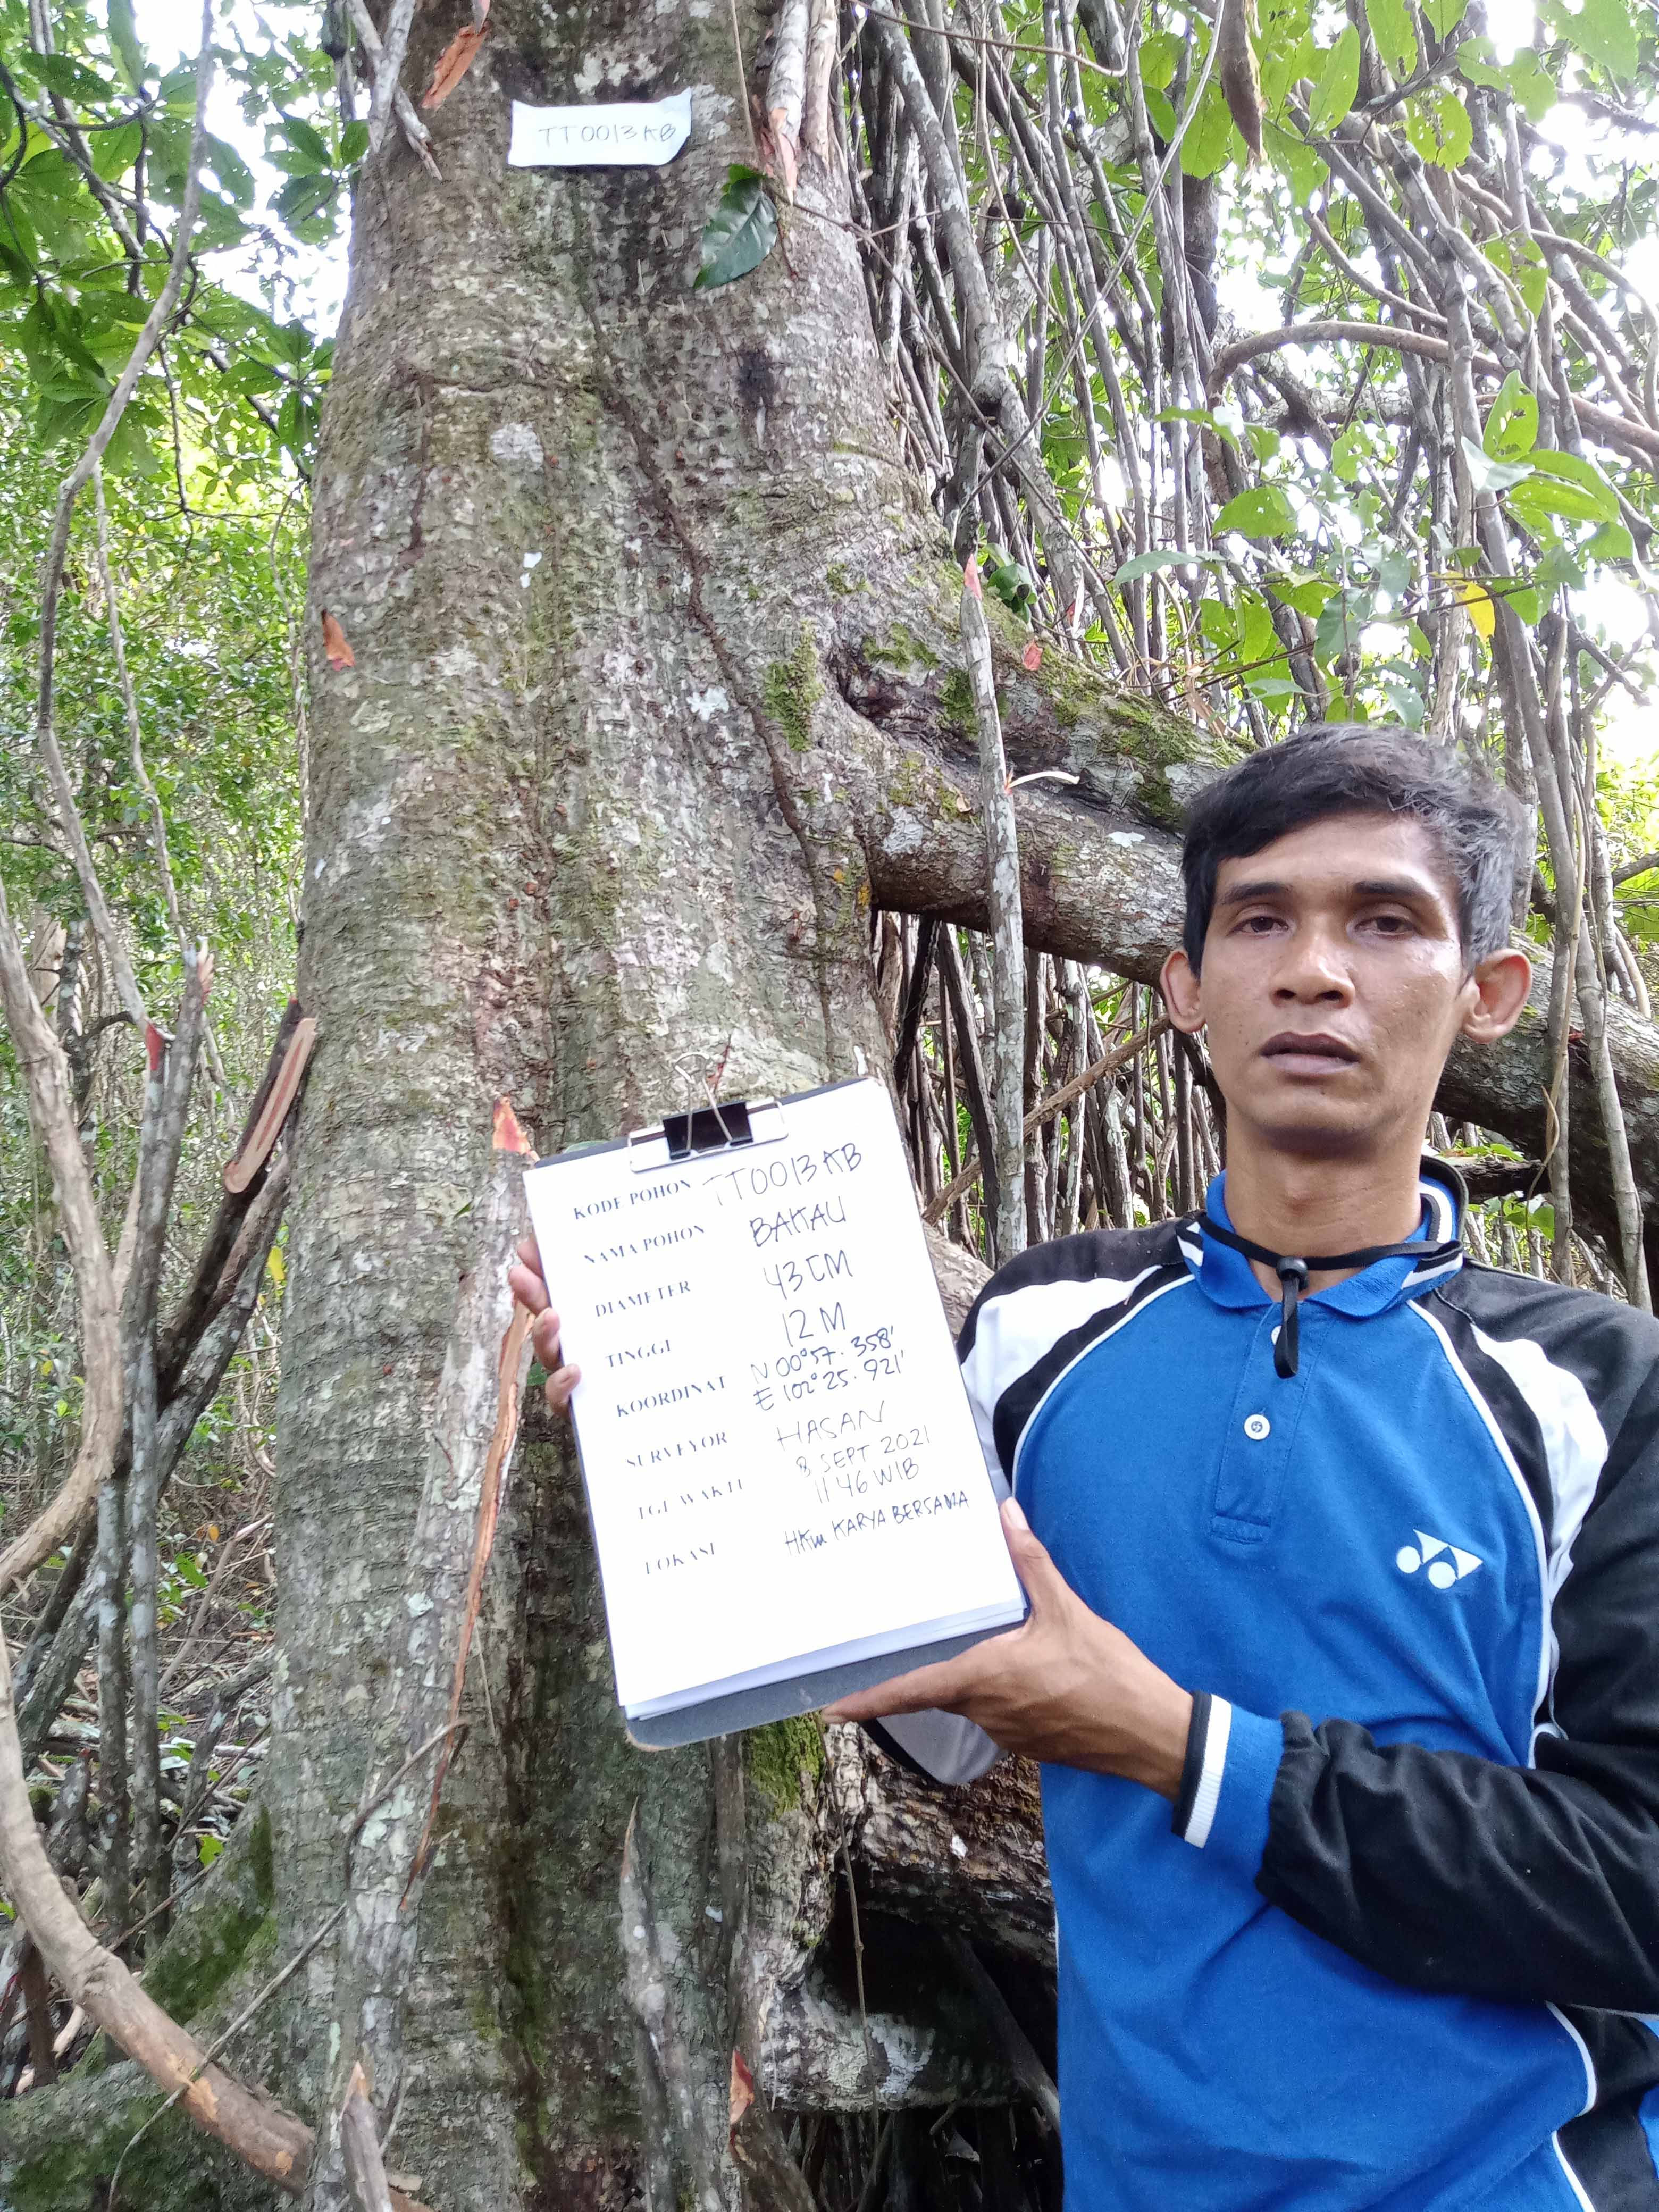 TT0013KB
KODE POHON TT0013KB
NAMA POHON BAKAU
DIAMETER 43 CM
TINGGI 12 M
KOORDINAT N 00°57.358'
E 102°25.921'
SURVEYOR HASAN
TGL WAKTU 8 SEPT 2021
11 46 WIB
LOKASI HKm KARYA BERSAMA